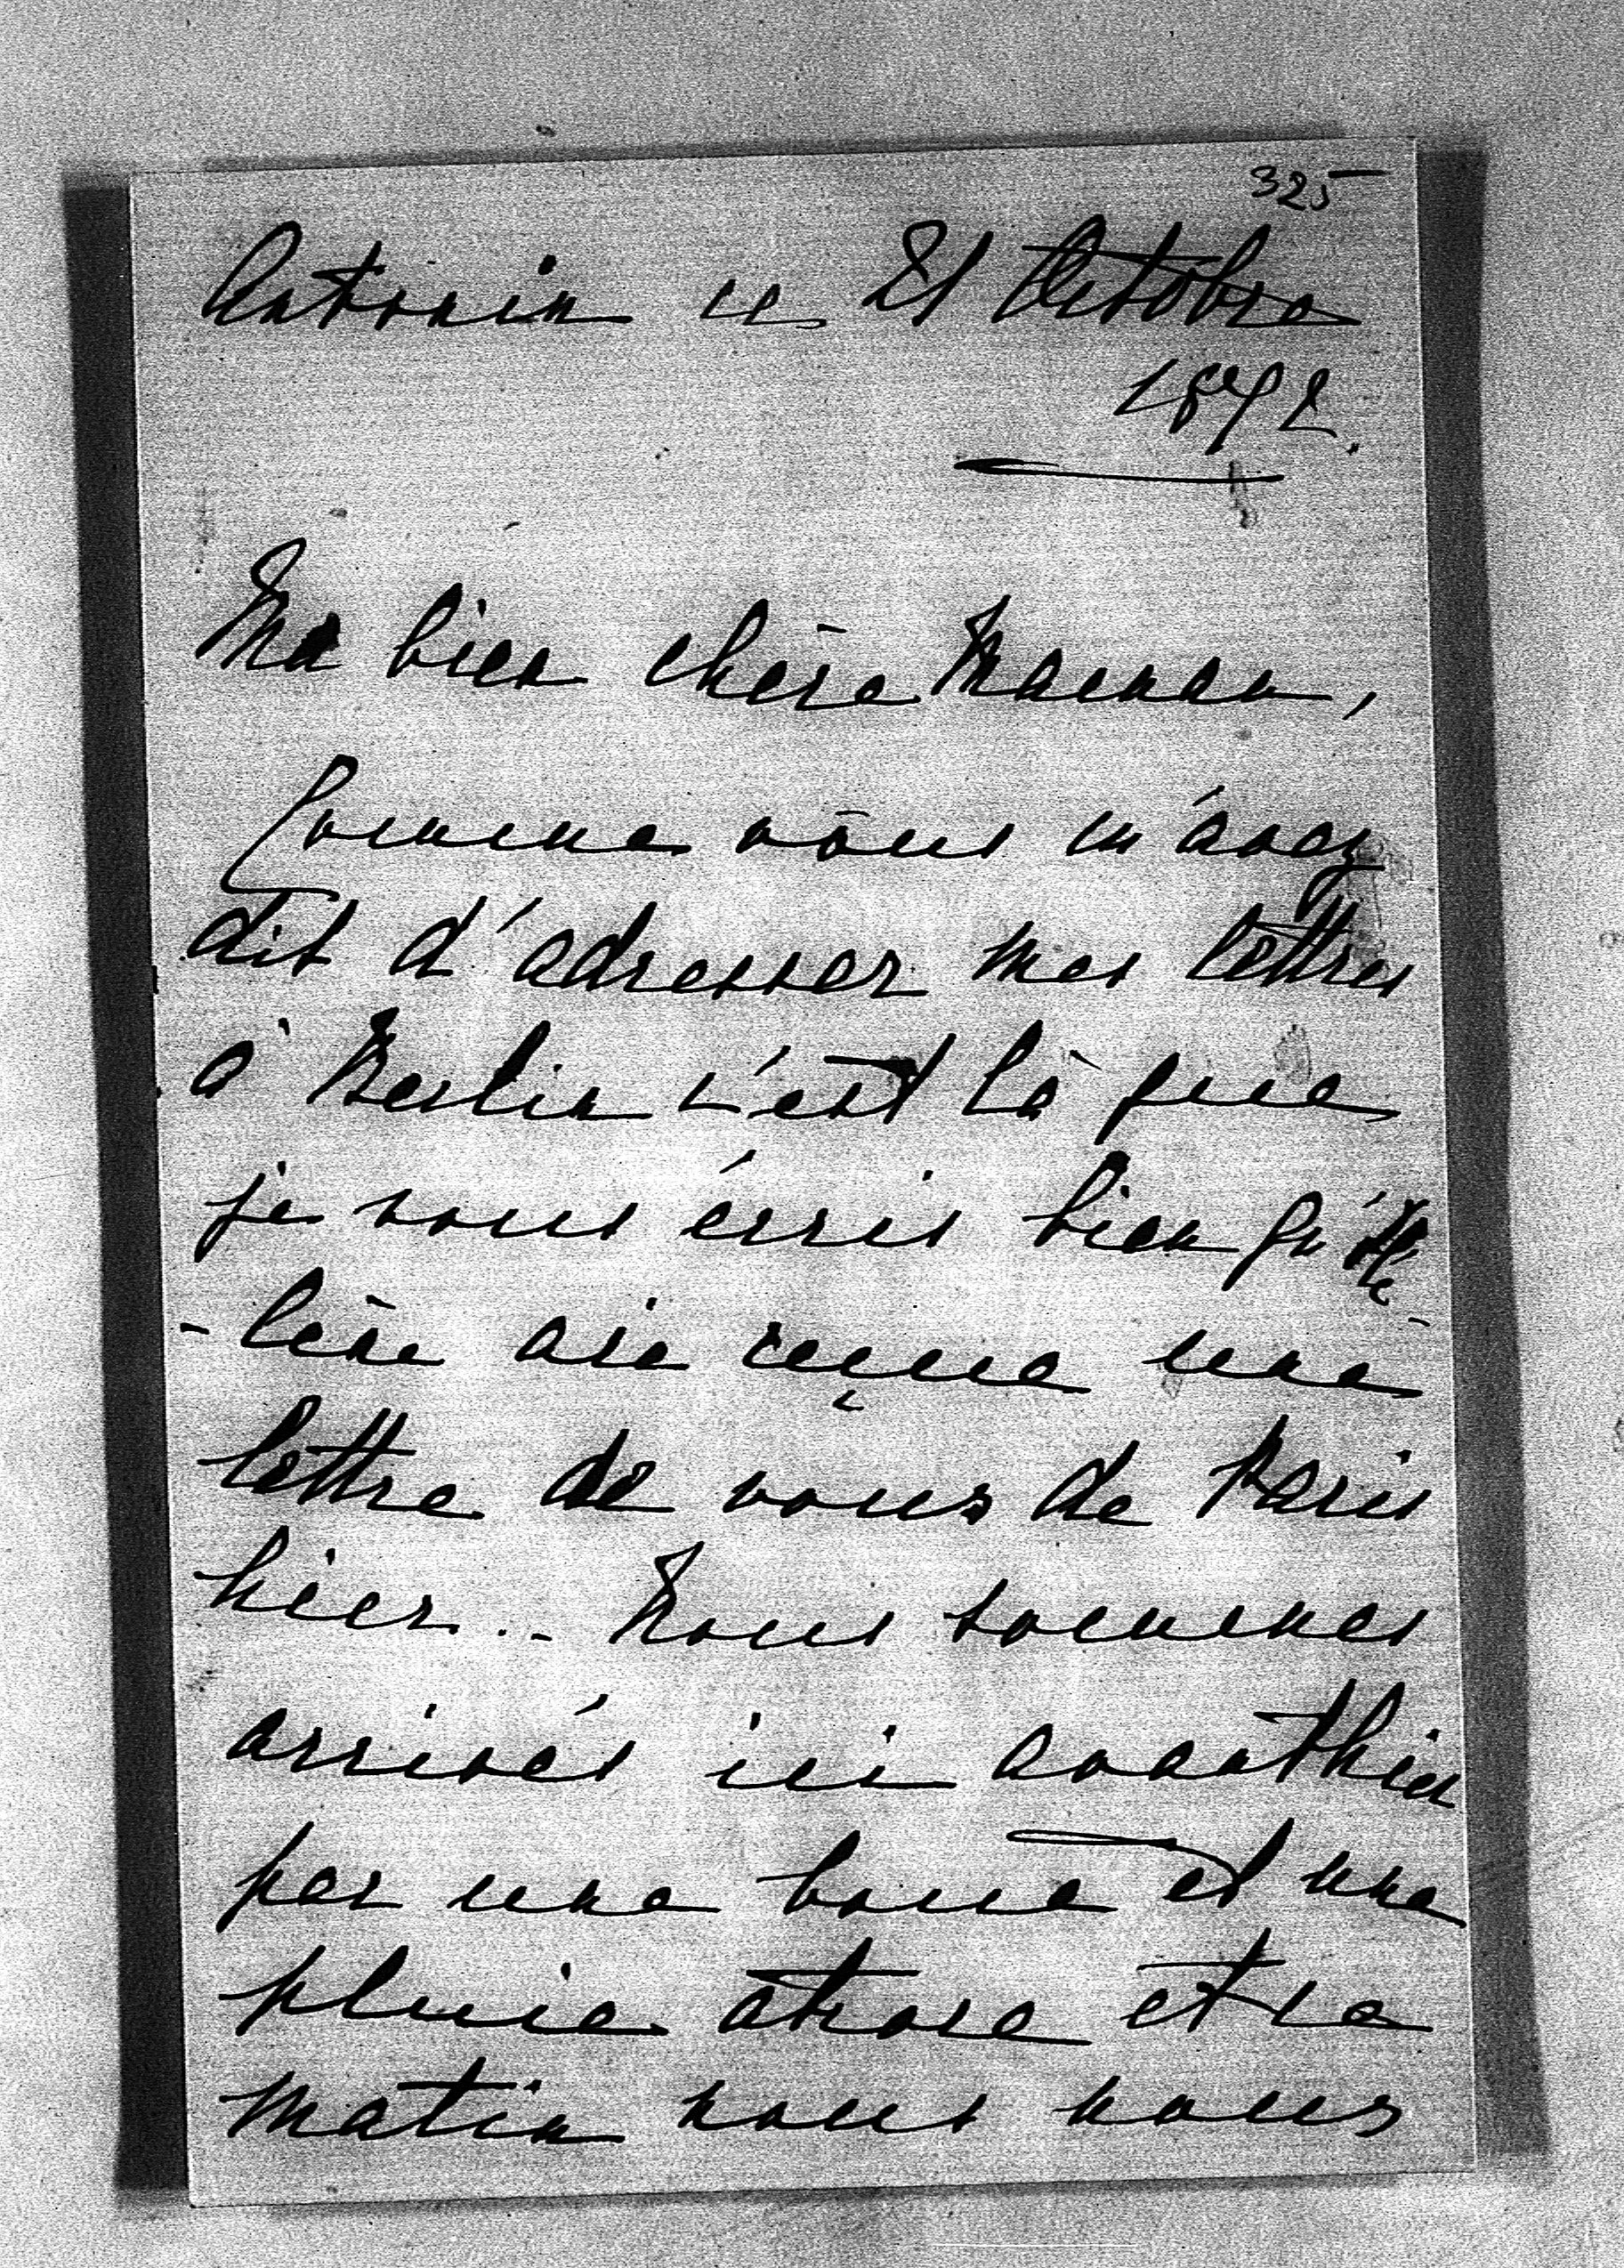 325
Antonin ce 21 Octobre
1872.
Ma bien chère Maman,
Comme vous m'avez
dit d'adresser mes lettres
à Berlin c'est là que
je vous écris bien qu'Hé
-lène aie reçue une
lettre de vous de Paris
hier... Nous sommes
arrivés ici avanthier
par une boue et une
pluie atroce et ce
matin nous nous